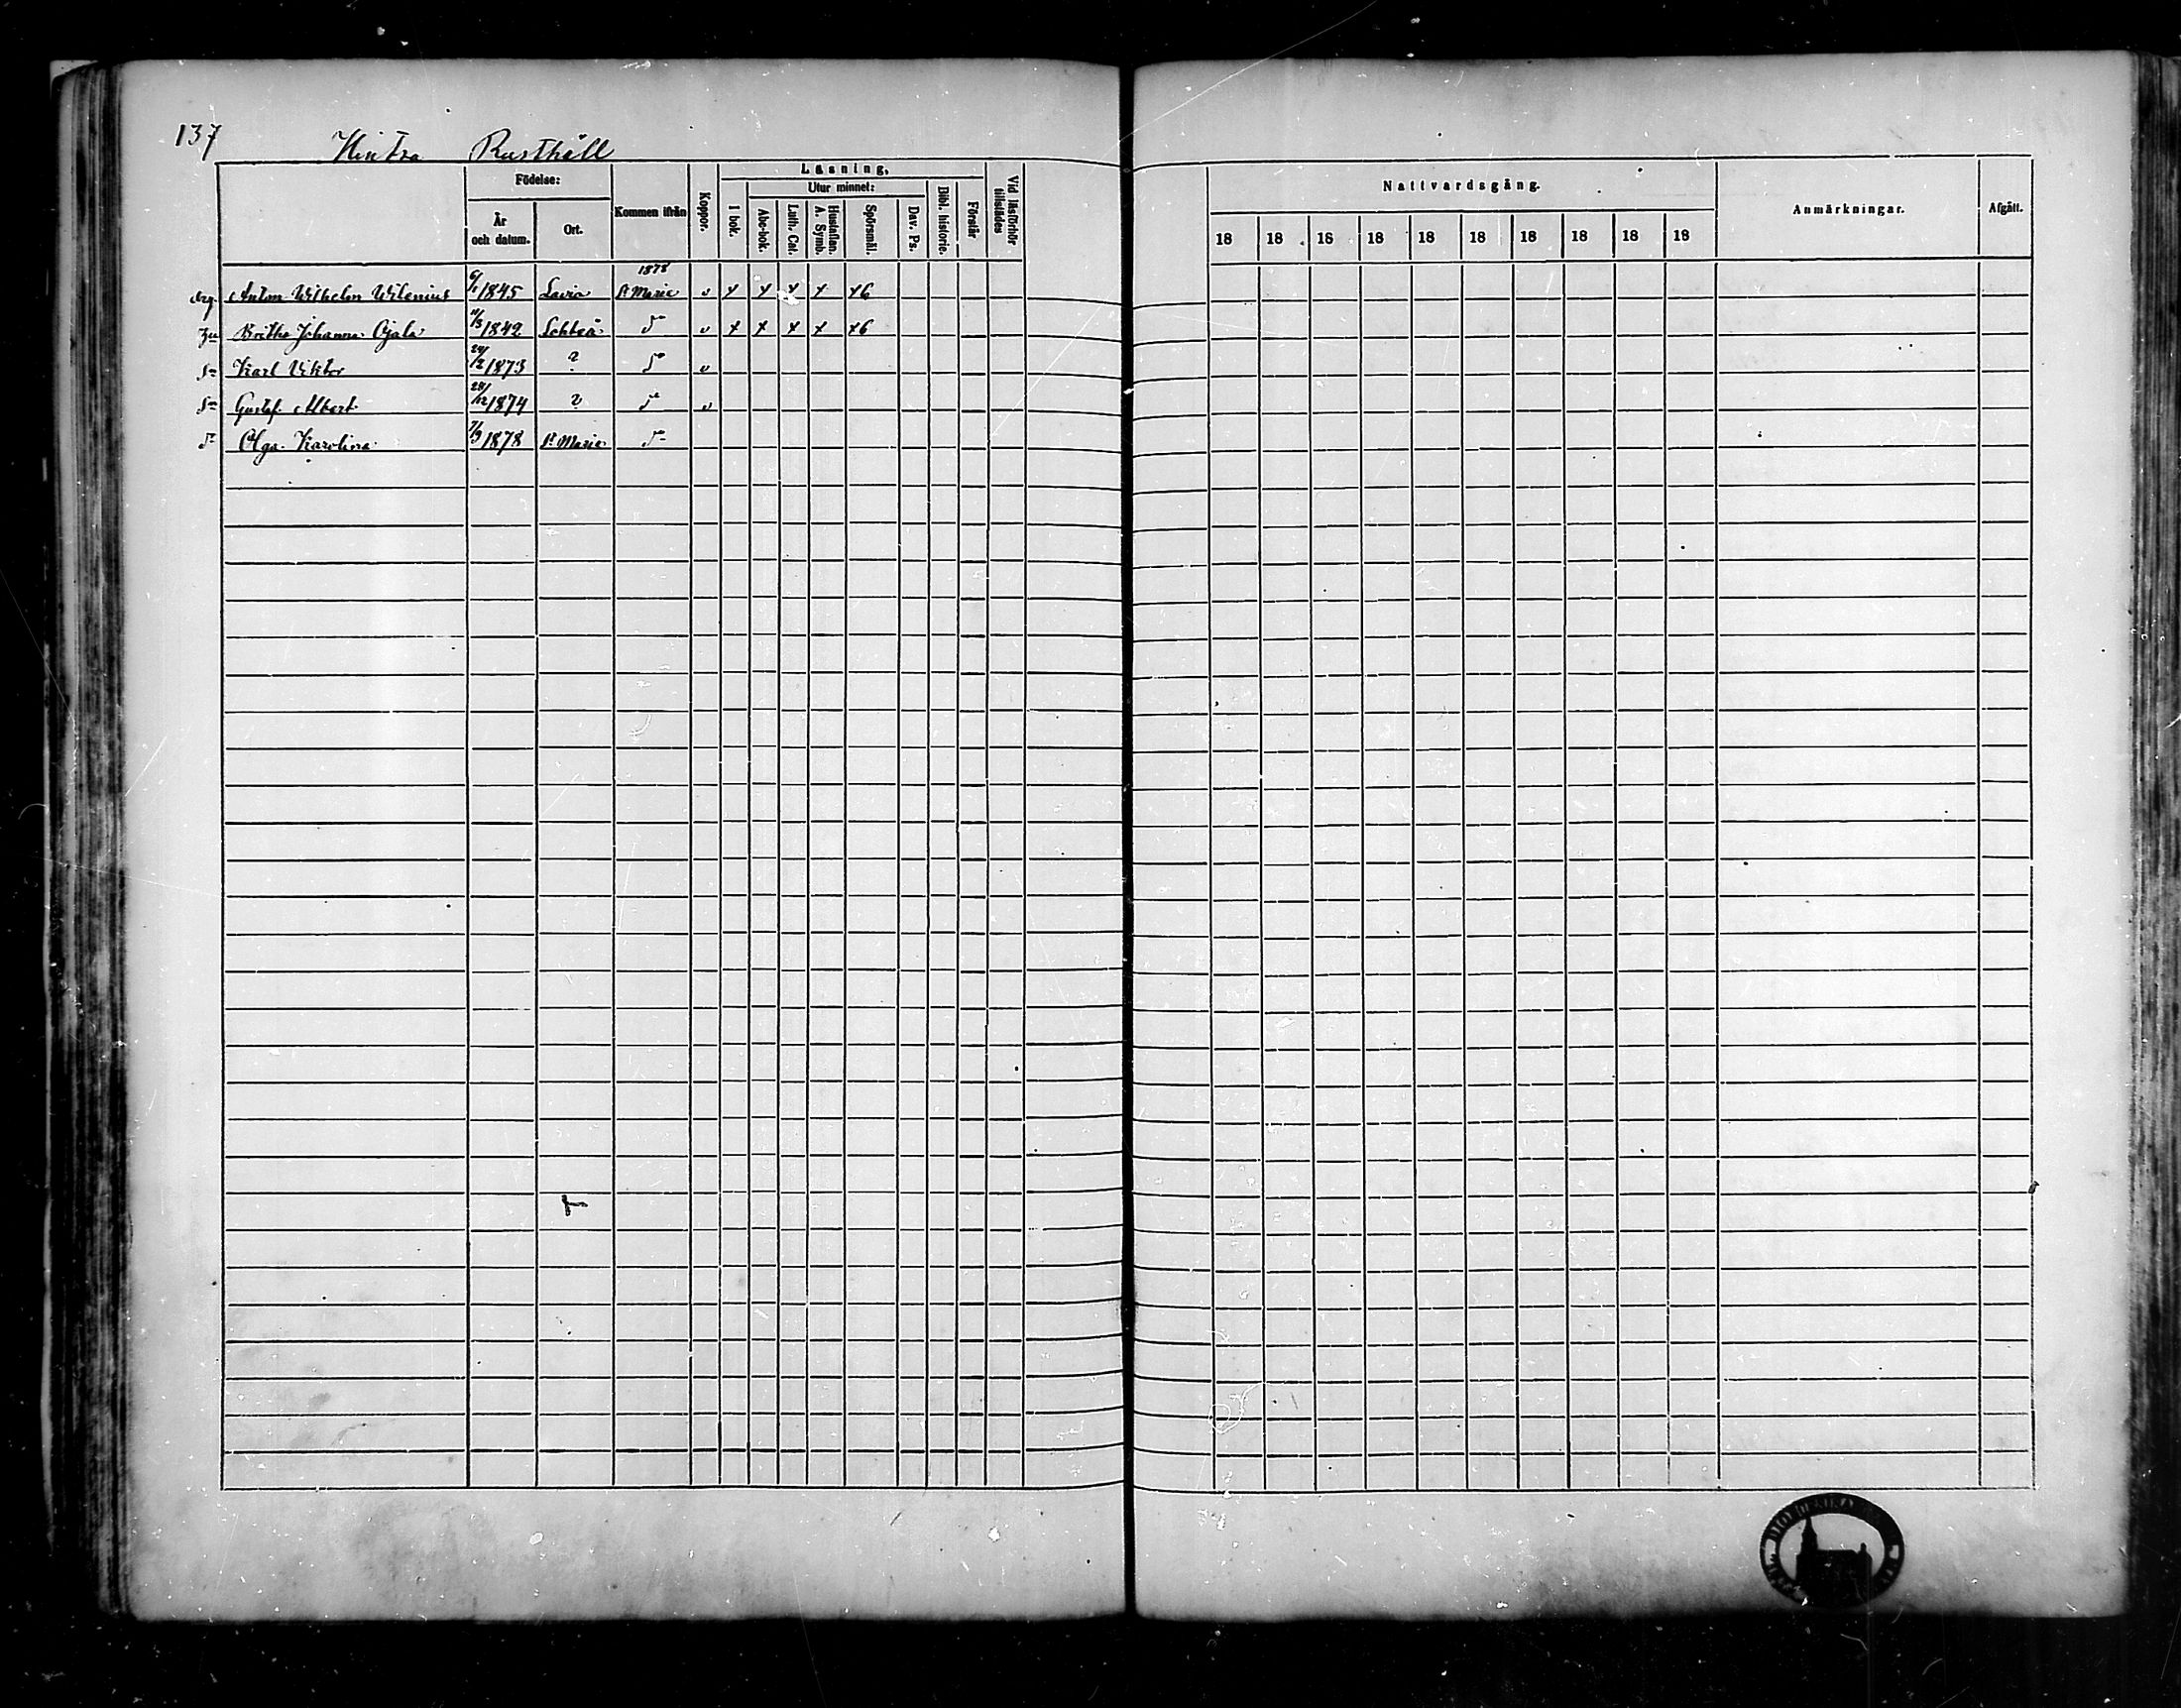 137
Hintsa Rusthåll
Födelse:
År och datum.
Ort.
Kommen ifrån
Koppor.
Läsning,
I bok.
Utur minnet:
Abc-bok.
Luth. Cat.
Hustaflan. A. Symb.
Spörsmål.
Dav. Ps.
Bibl. historie.
Förstår
Vid läsförhör tillstädes
Nattvardsgång.
18 18 18 18 18 18 18 18 18 18
Anmärkningar.
Afgått.
1878
Anton Wilhelm Wilenius 6/1 1845 Lavia St Marie v x x x x x6
Britha Johanna Ojala 11/3 1842 Lohteå Do v x x x x x6
Sn Karl Viktor 24/2 1873 ? Do v
Sn Gustaf Albert 28/12 1874 ? Do v
Dr Olga Karolina 7/9 1878 St Marie Do